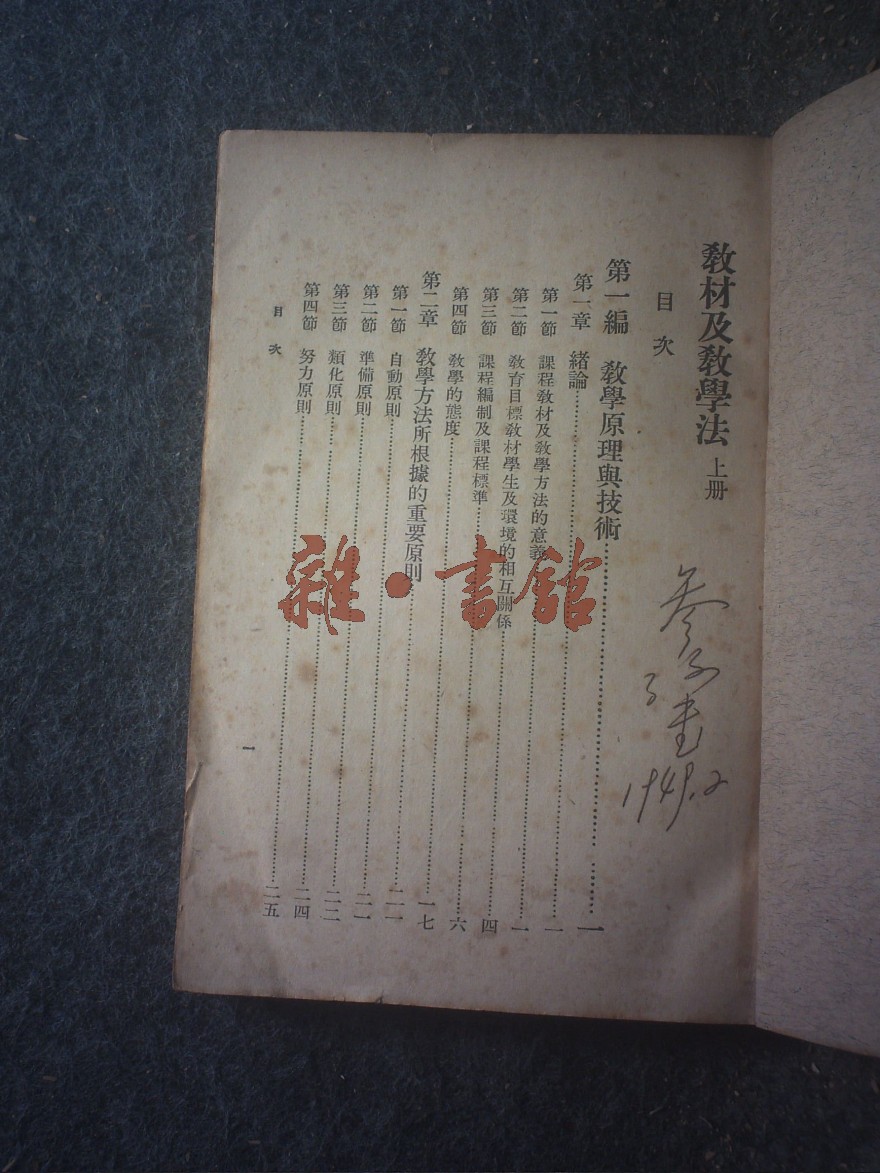 教材及教學法 上册
目次
第一編 教學原理與技術……一
第一章 緒論……一
第一節 課程教材及教學方法的意義……一
第二節 教育目標教材學生及環境的相互關係……四
第三節 課程編制及課程標準……六
第四節 教學的態度……一七
第二章 教學方法所根據的重要原則……二一
第一節 自動原則……二一
第二節 準備原則……二二
第三節 類化原則……二四
第四節 努力原則……二五
目次
一
1949.2
雜·書館